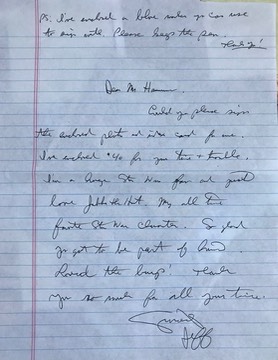 PS: I've enclosed a blue sharpie you can use
to sign with. Please keep the pen.
Thank you!
Dear Mr
Could you please sign
the enclosed photo and index card for me.
I've enclosed $40 for your time & trouble.
I'm a huge Star Wars fan and just
love Jabba the Hutt. My all time
favorite Star Wars Character. So glad
you got to be part of
Loved the Thank
you so much for all your time.
Sincerely
Jeff